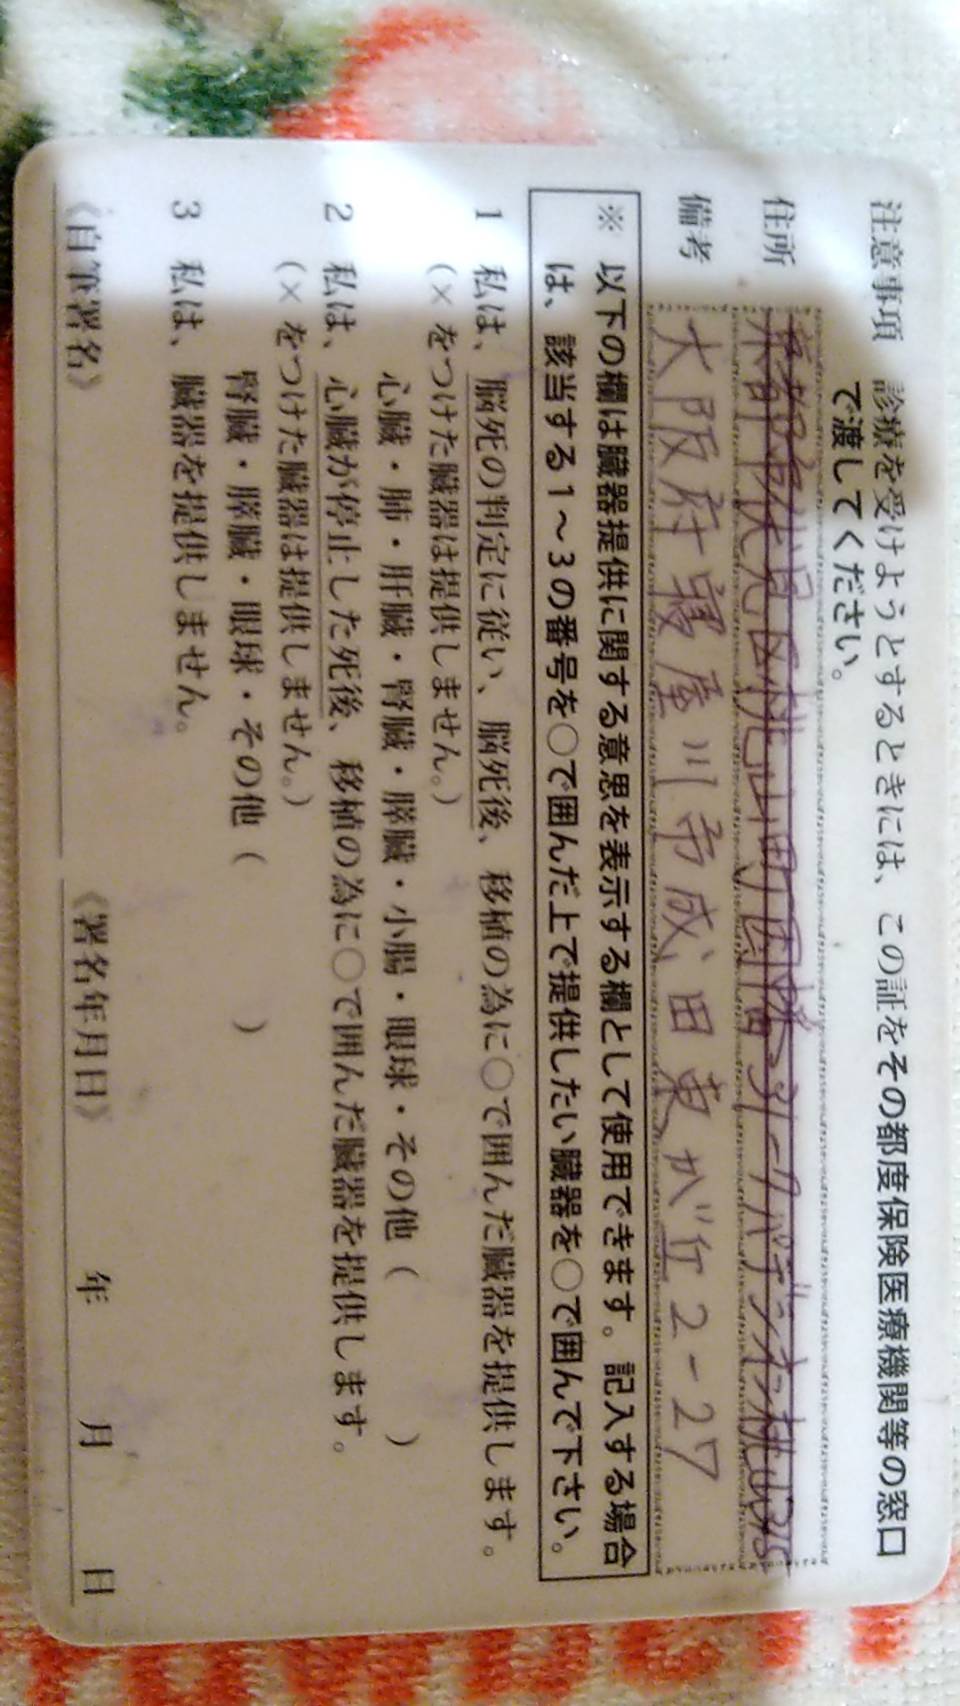 注意事項 診療を受けようとするときには、この証をその都度保険医療機関等の窓口
で渡してください。
住所 京都市伏見区桃山町因幡
備考 大阪府寝屋川市成田東が丘2-27
※ 以下の欄は臓器提供に関する意思を表示する欄として使用できます。記入する場合
は、該当する1～3の番号を○で囲んだ上で提供したい臓器を○で囲んで下さい。
1 私は、脳死の判定に従い、脳死後、移植の為に○で囲んだ臓器を提供します。
(×をつけた臓器は提供しません。)
心臓・肺・肝臓・腎臓・膵臓・小腸・眼球・その他( )
2 私は、心臓が停止した死後、移植の為に○で囲んだ臓器を提供します。
(×をつけた臓器は提供しません。)
腎臓・膵臓・眼球・その他( )
3 私は、臓器を提供しません。
《自筆署名》 《署名年月日》 年 月 日